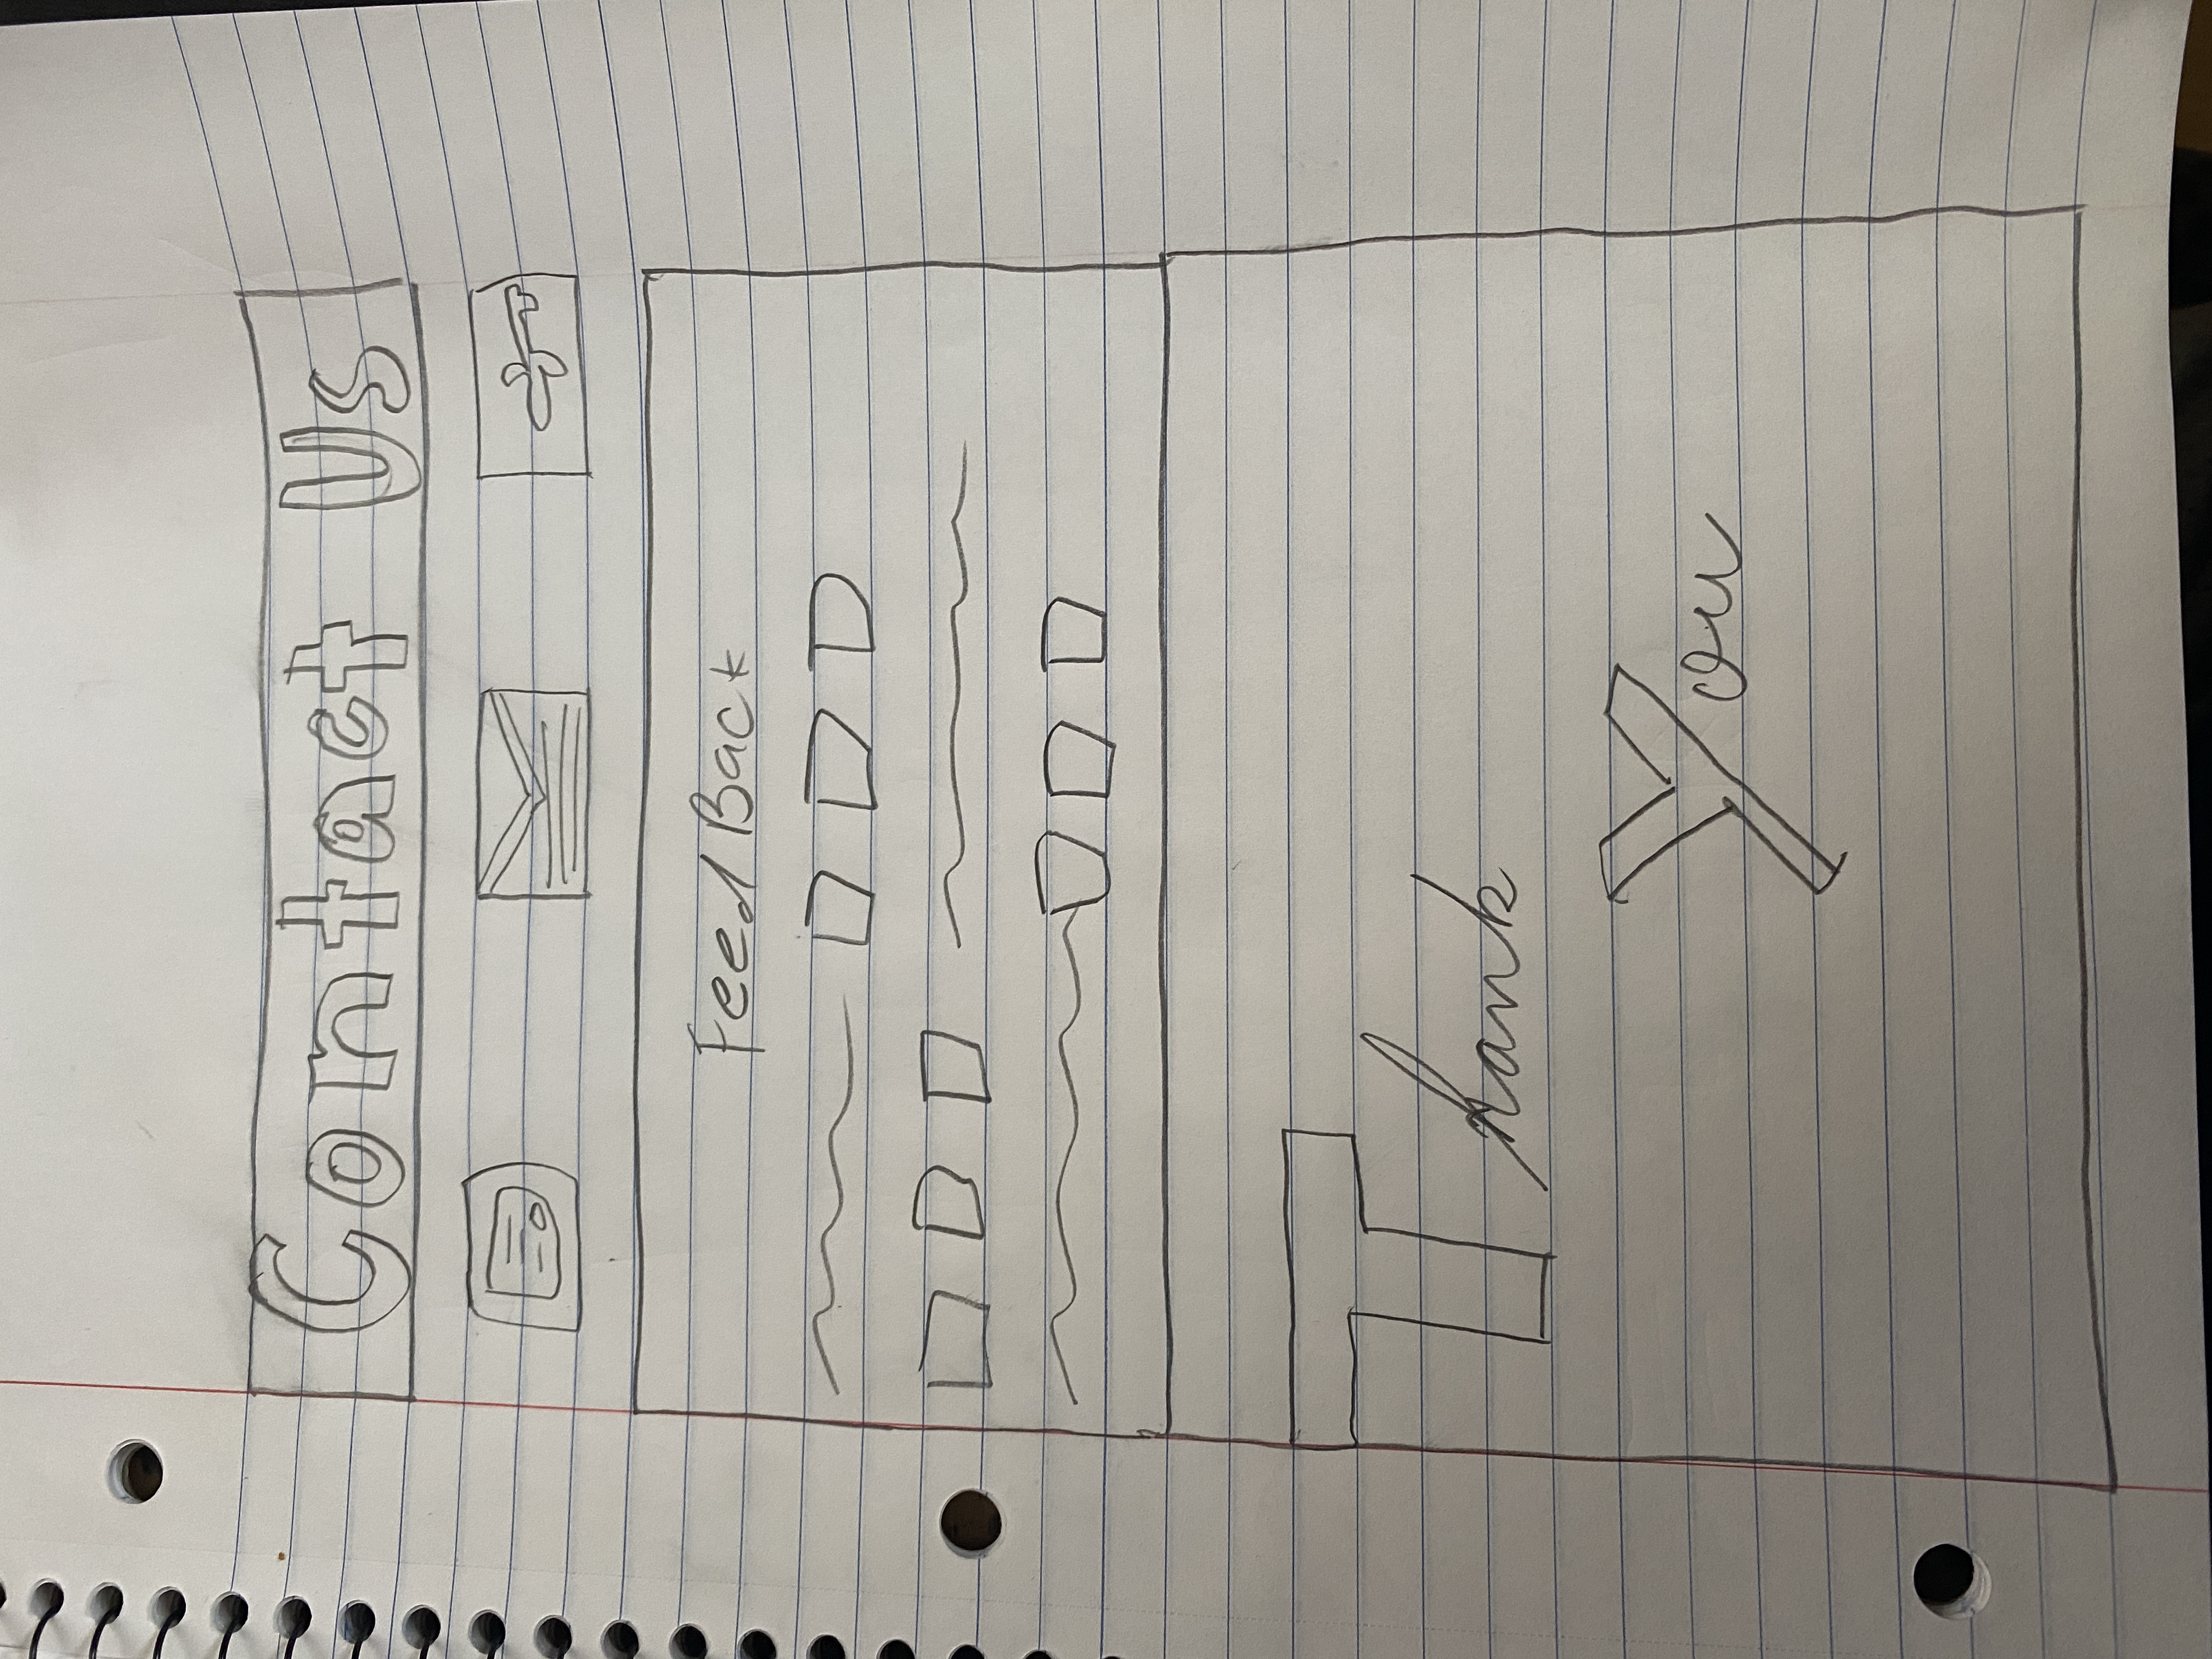 Contact Us
FeedBack
Thank
You